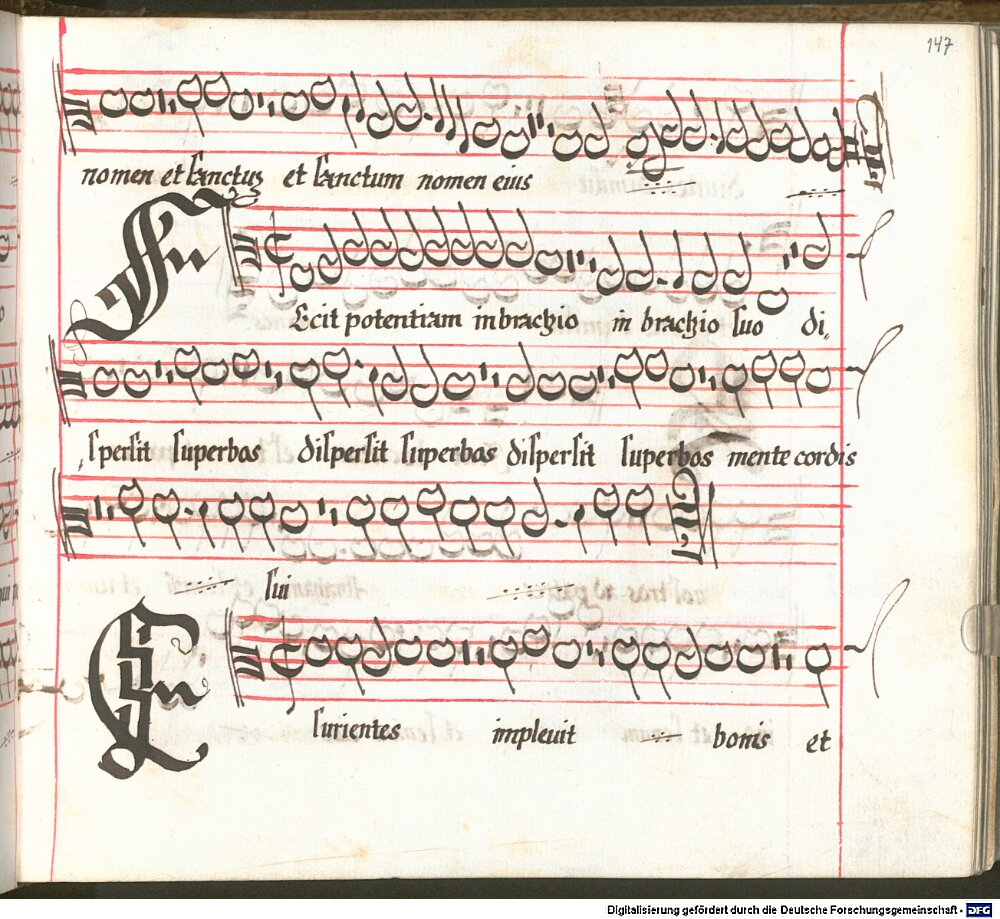 147
nomen et sanctus et sanctum nomen eius
Fecit potentiam in brachio in brachio suo di,
,spersit superbos dispersit superbos dispersit superbos mente cordis
sui
Esurientes impleuit bonis et
Digitalisierung gefördert durch die Deutsche Forschungsgemeinschaft - DFG